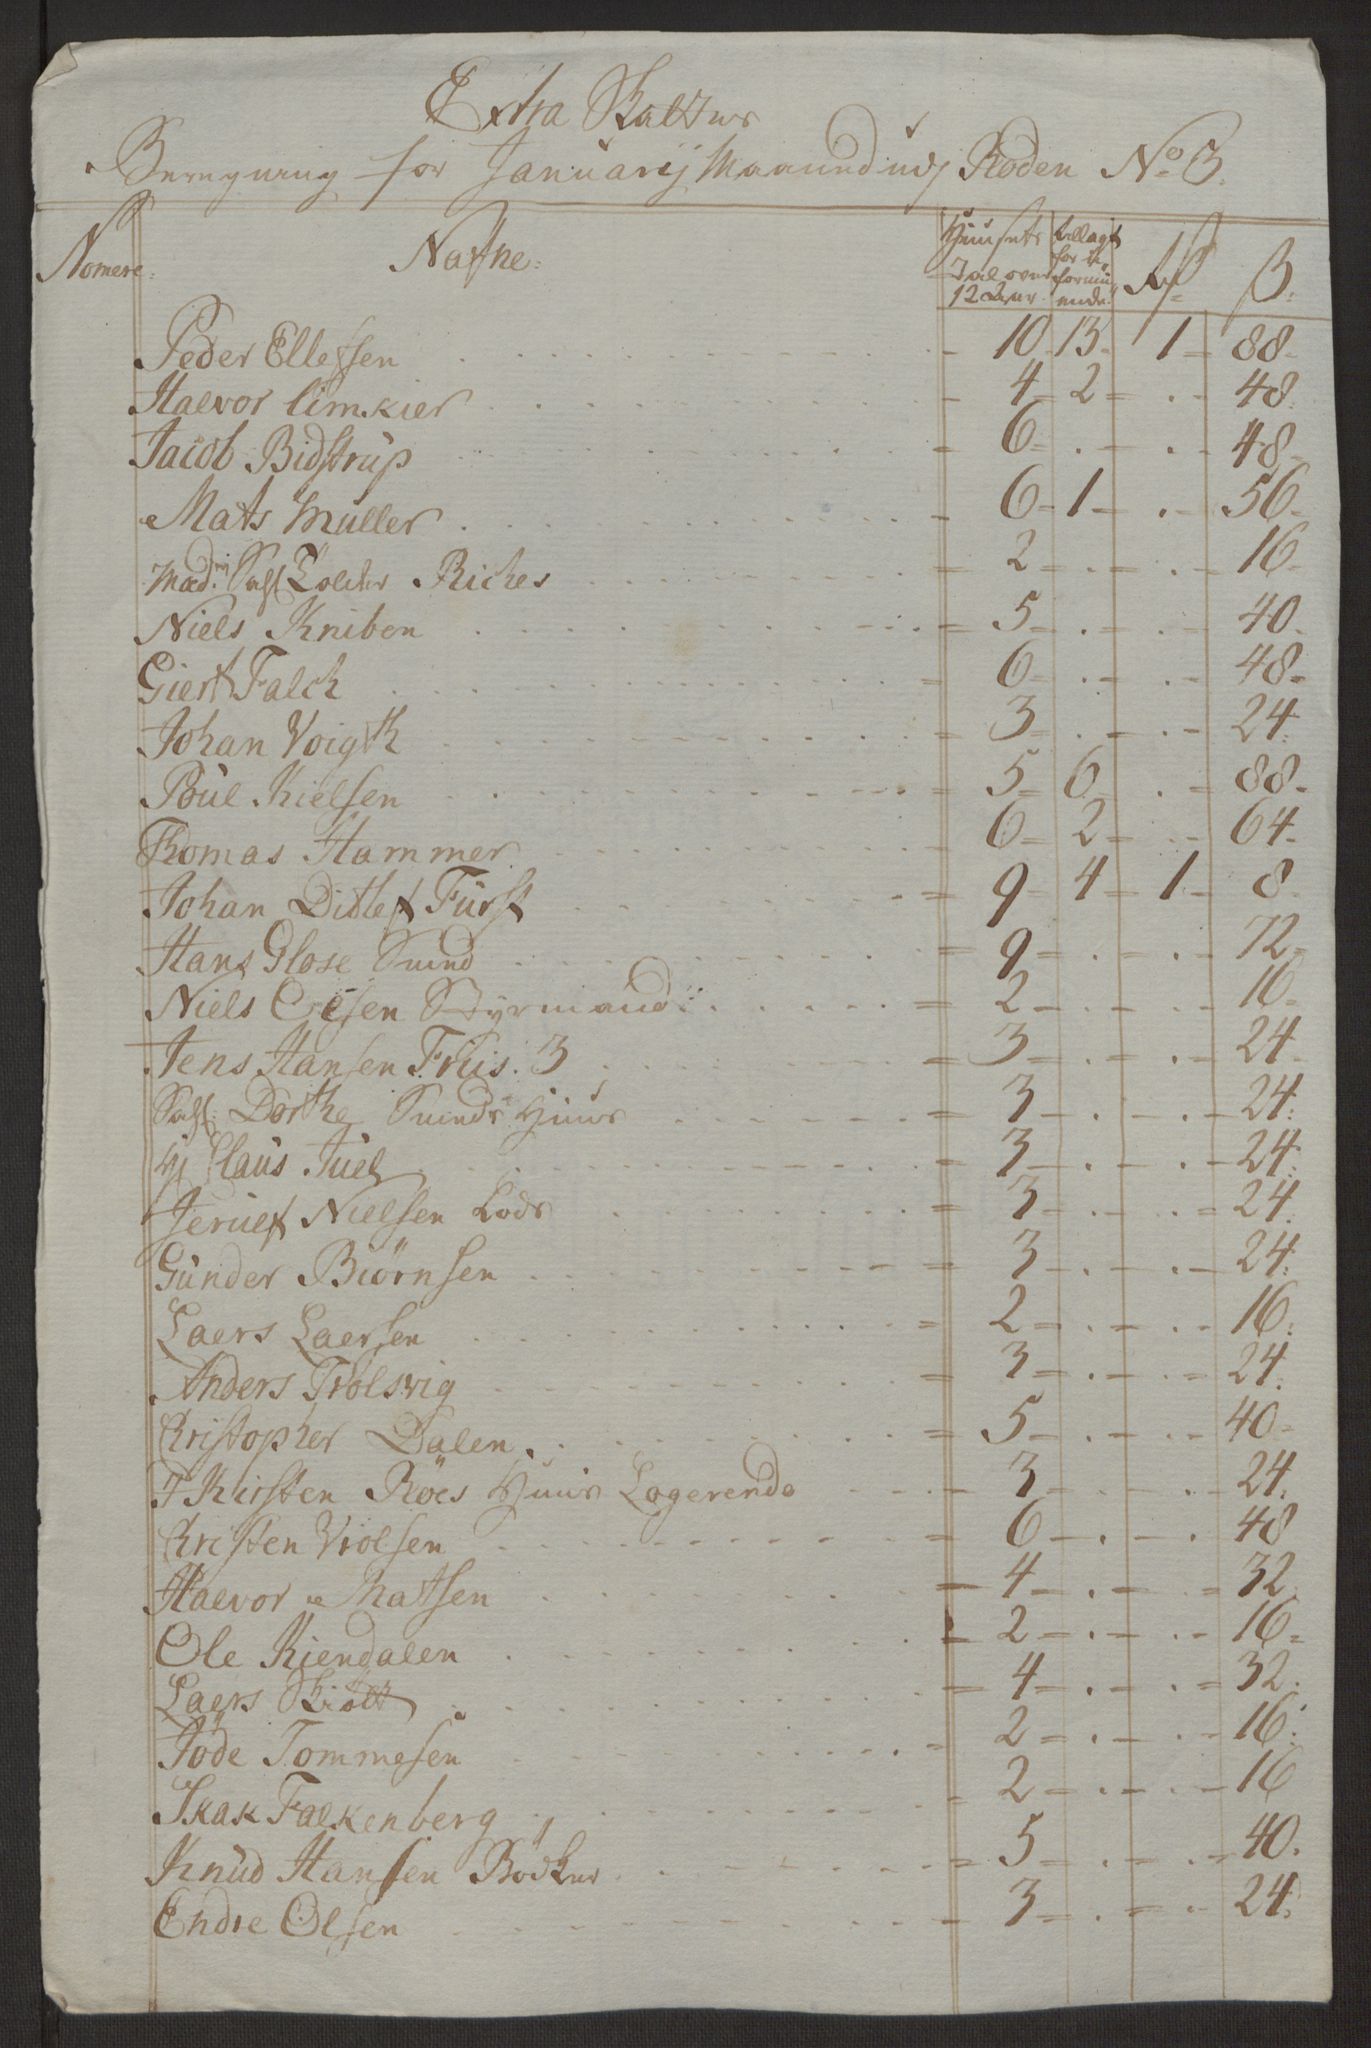 Extra Skattens
Beregning for Januarij Maaned udj Roden No 3.
Nomere: Nafne: Huusets Tal over 12 Aar. tillagt for de formuende. Rd ß:
Peder Ellefsen 10 13 1 88
Halvor Limkier 4 2 48
Jacob Bidstrup 6 48
Mats Müller 6 1 56
Mad. Sahl Riches 2 16
Niels Kniben 5 40
Giert Falck 6 48
Johan Voigth 3 24
Poul Nielsen 5 6 88
Thomas Hammer 6 2 64
Johan Ditlef Fürst 9 4 1 8
Hans Glose Smed 9 72
Niels Olsen Styrmand 2 16
Jens Hansen Friis. 3 3 24
Sahl. Dorthe Smeds Huus 3 24
H Claus Juel 3 24
Jeruef Nielsen Lods 3 24
Gunder Biörnsen 3 24
Laers Laersen 2 16
Anders Trolsvig 3 24
Christopher Dalen 5 40
J Kirsten Röes Huus Logerende 3 24
Christen Vrolsen 6 48
Halvor Matsen 4 32
Ole Kiendalen 2 16
Laers Skiölt 4 32
Jöde Tommesen 2 16
Isak Falkenberg 2 16
Knud Hansen Bödker 5 40
Endre Olsen 3 24